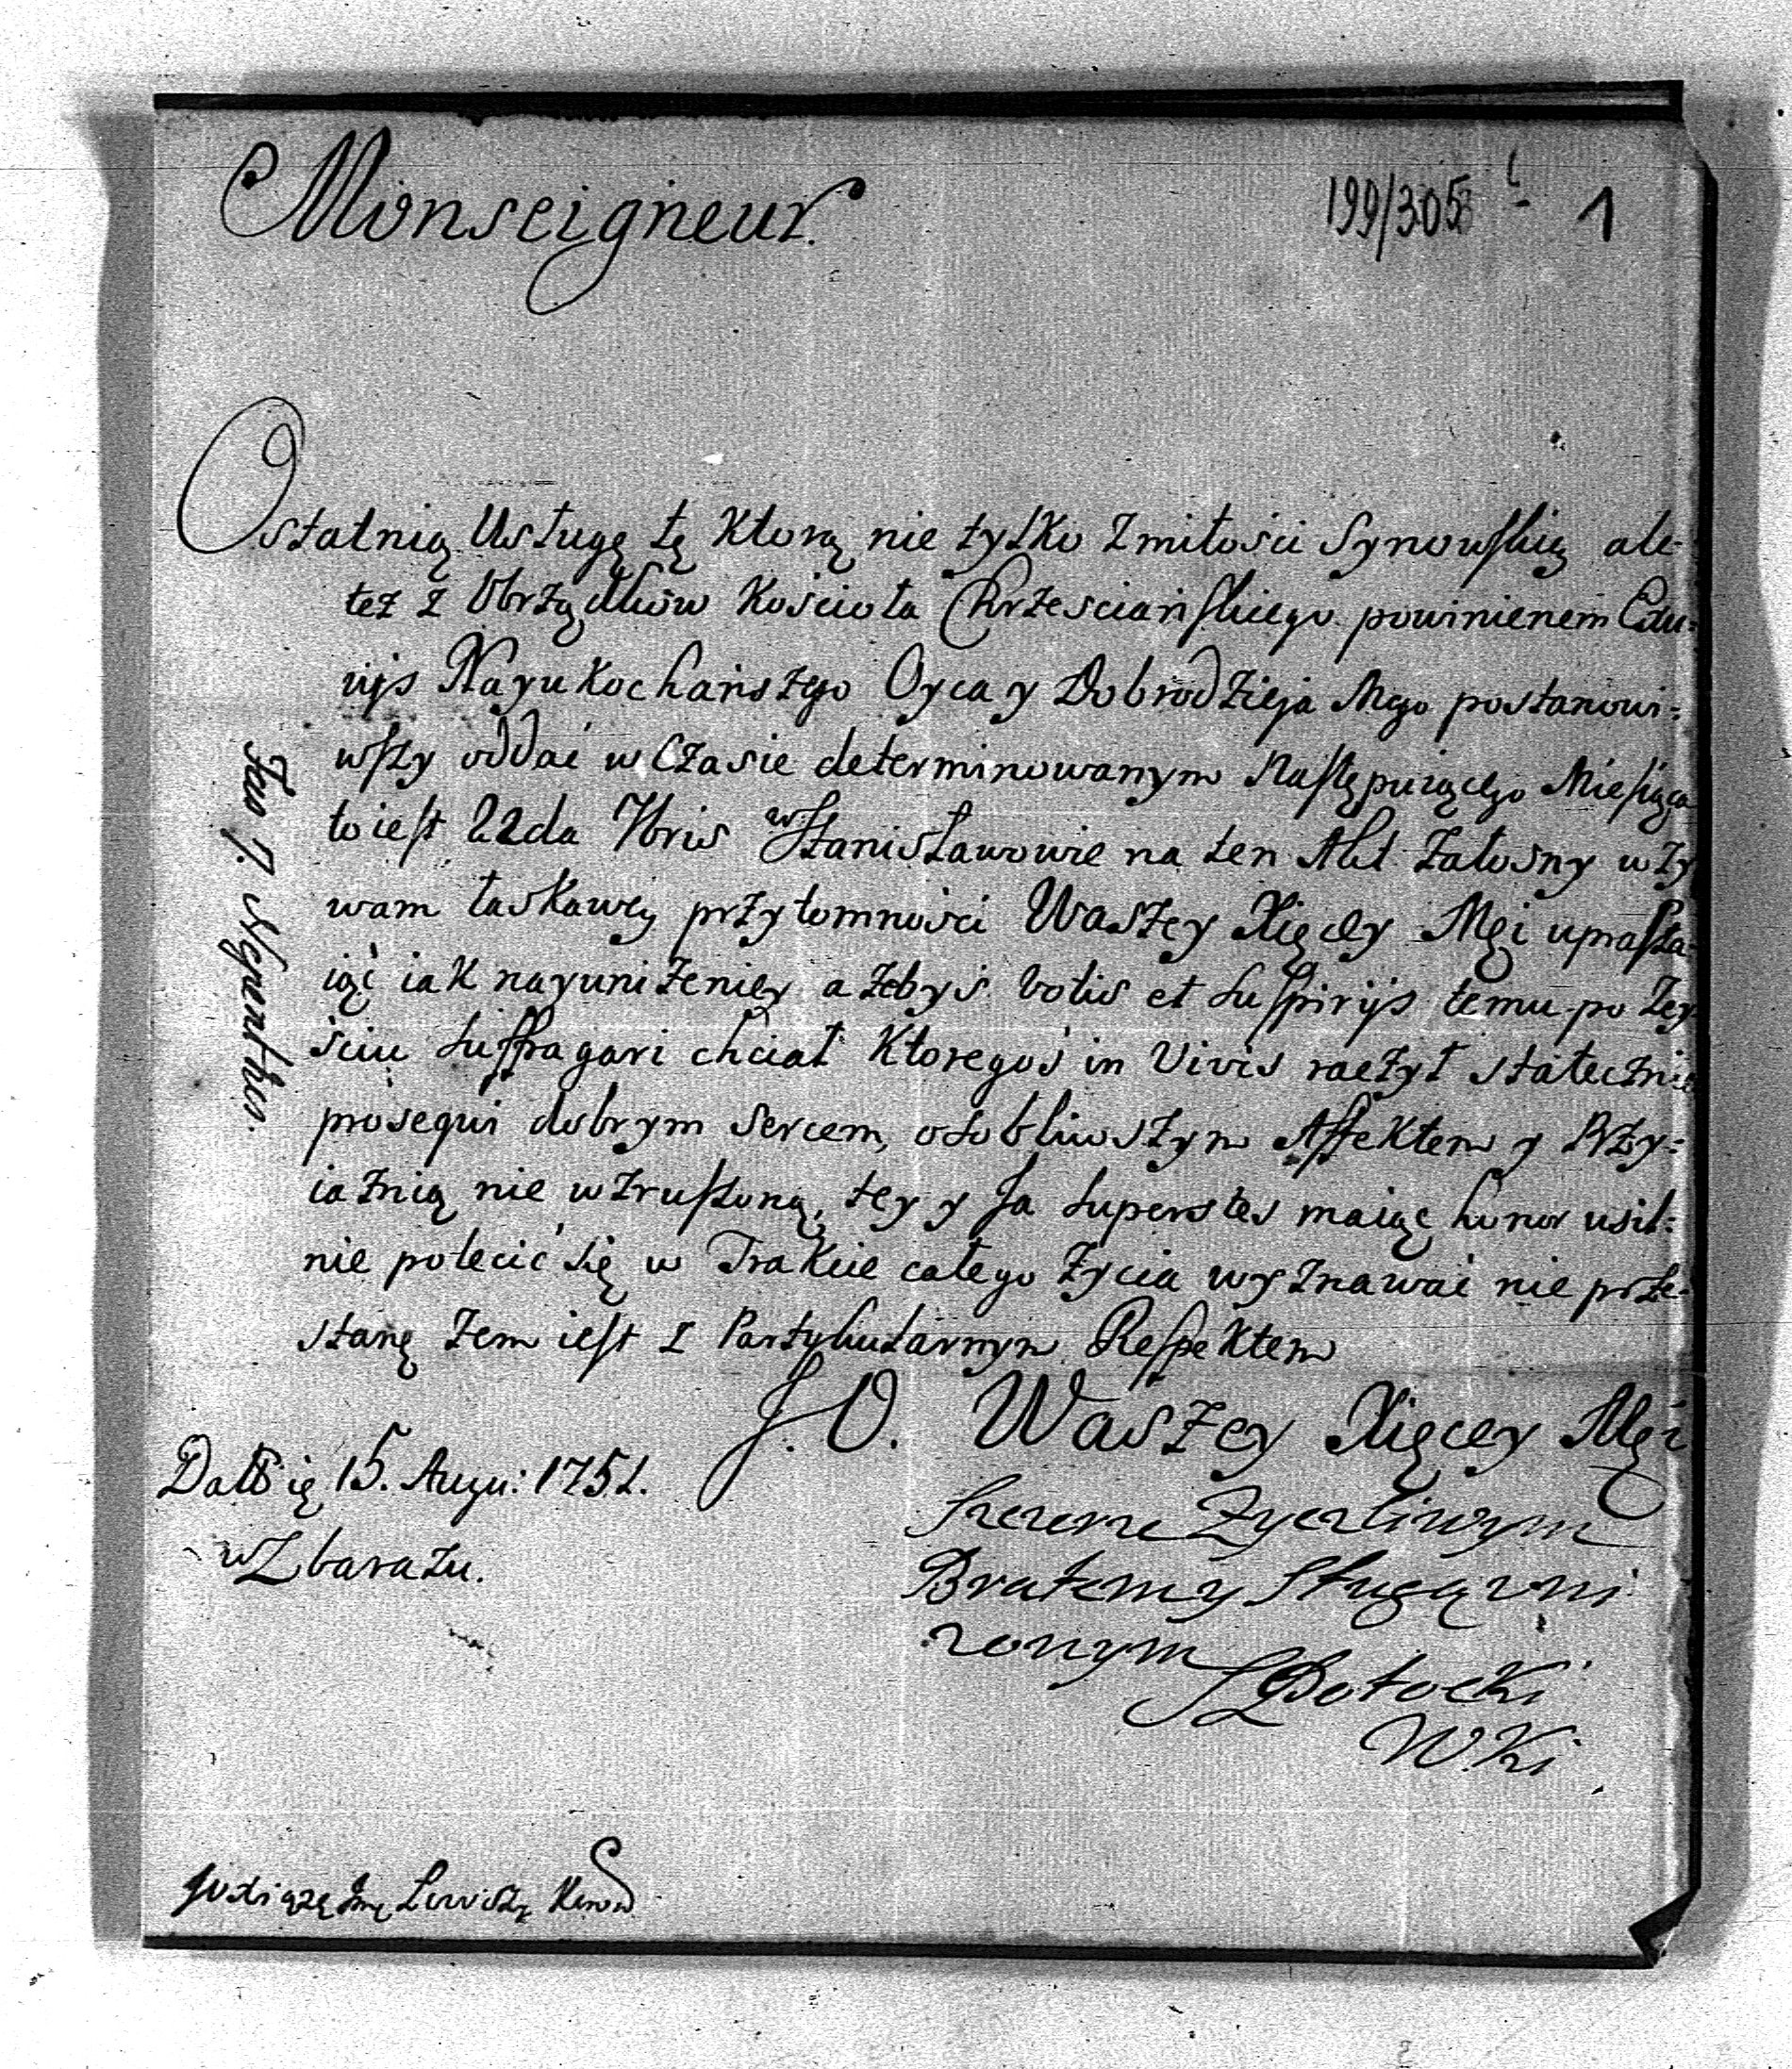 Monseigneur.
199/305 1
Ostatnią Usługę tę Ktorą nie tylko z miłosci Synowskiey ale
tez z Obrządkow Koscioła Chrzescianskiego powinienem
Nayukochanszego Oyca y Dobrodzieja Mego postanowi:
wszy oddać w Czasie determinowanym Następuiącego Miesiąca
to iest 22da 7bris w Stanisławowie na ten Akt załosny wzy
wam łaskawey przytomnosci Waszey Xięcey Mci uprasza
iąć iak nayunizeniey azebyś votis et suspirijs temu po zey
sciu suffragari chciał Ktoregoś in Vivis raczył statecznie
prosequi dobrym sercem, osobliwszym Affektem y Przy:
iaznią nie wzruszoną, tey y Ja superstes maiąc honor usil:
nie polecić się w Trakcie całego zycia wyznawać nie prze:
stanę zem iest z Partykularnym Respektem
J. O. Waszey Xięcey Mci
Datt się 15. Augu: 1751.
w Zbarazu.
Szczerze Zyczliwym
Bratem y Sługą uni
zonym
Potocki
WKi